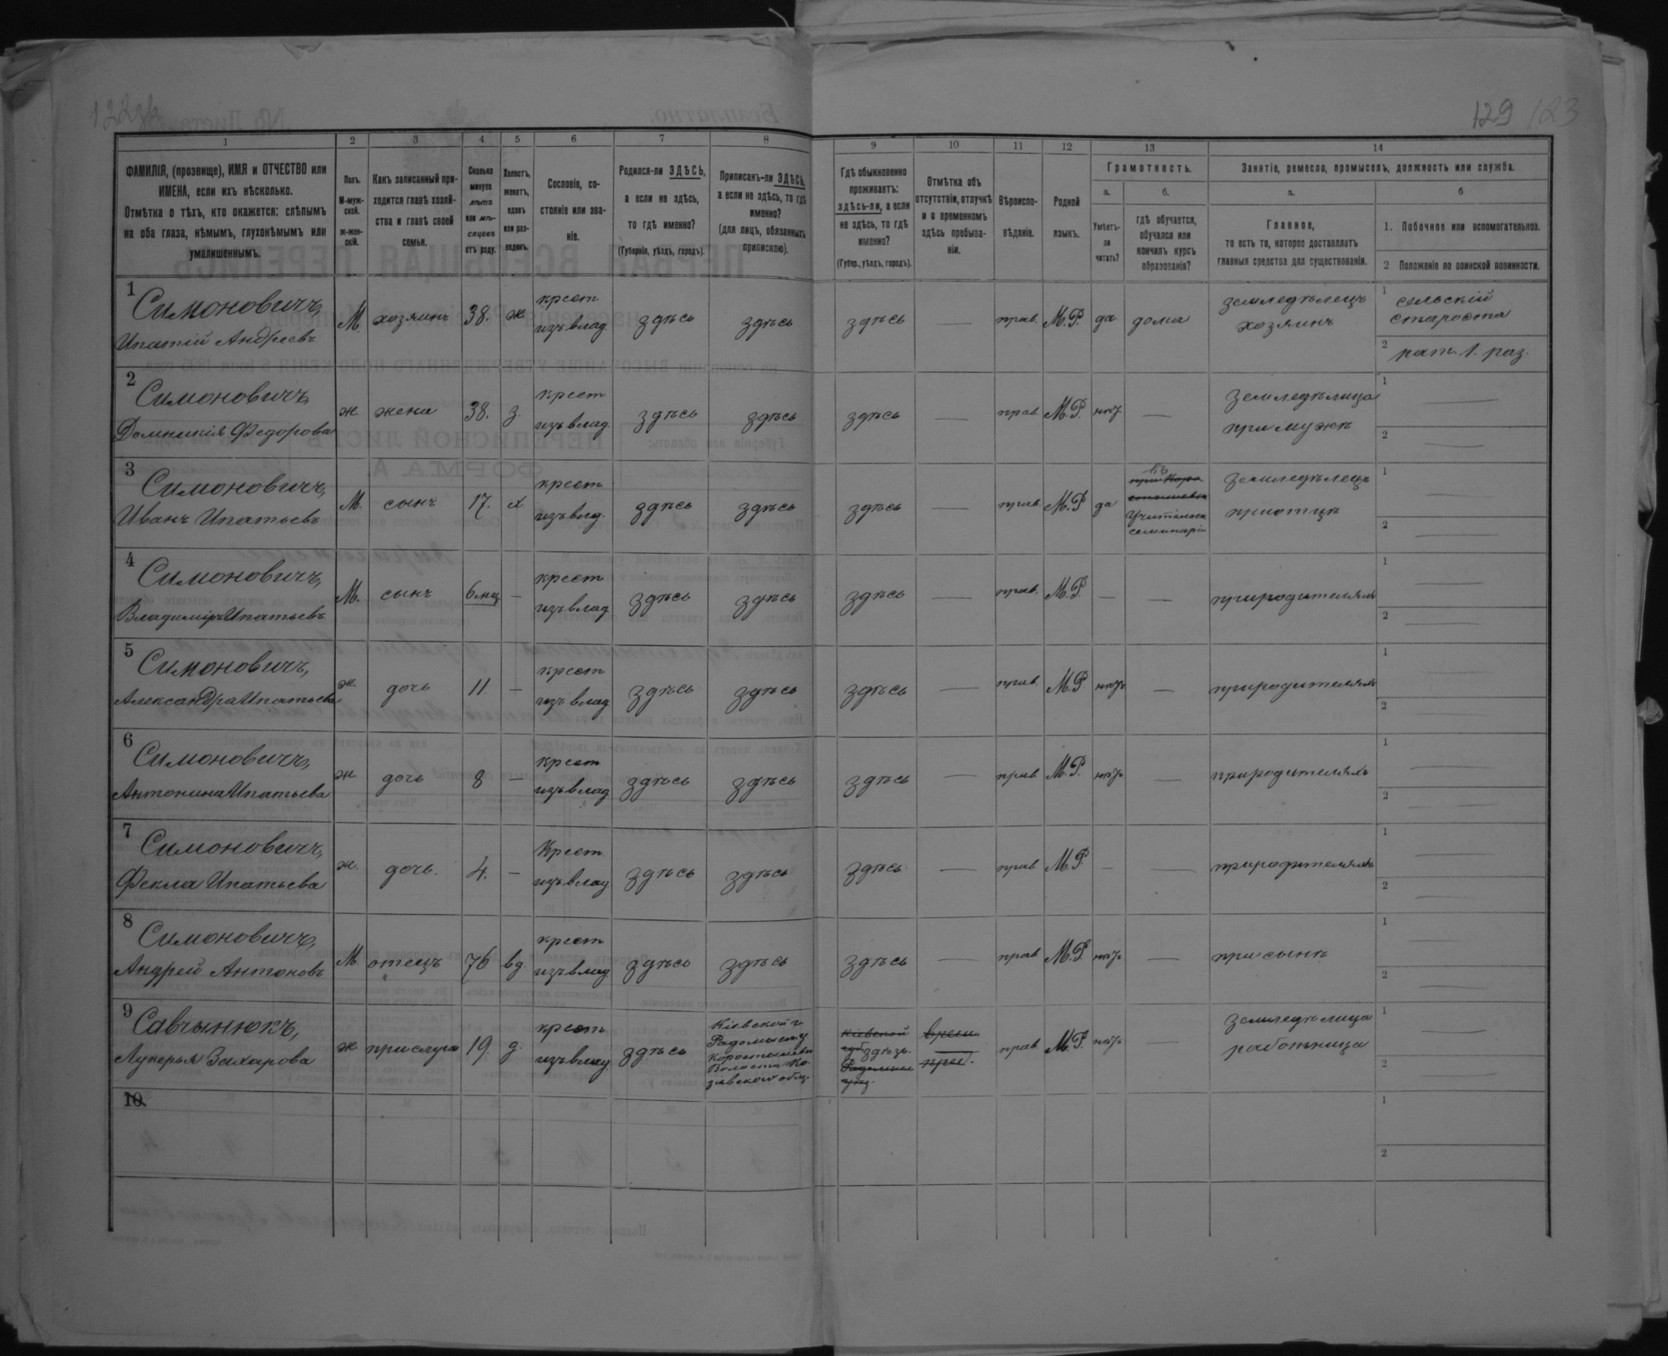 129 123
1 2 3 4 5 6 7 8 9 10 11 12 13 14
ФАМИЛІЯ, (прозвище), ИМЯ и ОТЧЕСТВО или
ИМЕНА, если ихъ нѣсколько.
Отмѣтка о тѣхъ, кто окажется: слѣпымъ
на оба глаза, нѣмымъ, глухонѣмымъ или
умалишеннымъ.
Полъ.
М-муж-
ской.
ж-жен-
скій.
Какъ записанный при-
ходится главѣ хозяй-
ства и главѣ своей
семьи.
Сколько
минуло
лѣтъ
или мѣ-
сяцевъ
отъ роду.
Холостъ,
женатъ,
вдовъ
или раз-
веденъ.
Сословіе, со-
стояніе или зва-
ніе.
Родился-ли ЗДѢСЬ,
а если не здѣсь,
то гдѣ именно?
(Губернія, уѣздъ, городъ).
Приписанъ-ли ЗДѢСЬ,
а если не здѣсь, то гдѣ
именно?
(для лицъ, обязанныхъ
припискою).
Гдѣ обыкновенно
проживаетъ:
здѣсь-ли, а если
не здѣсь, то гдѣ
именно?
(Губер., уѣздъ, городъ).
Отмѣтка объ
отсутствіи, отлучкѣ
и о временномъ
здѣсь пребыва-
ніи.
Вѣроиспо-
вѣданіе.
Родной
языкъ.
Грамотность.
а.
Умѣетъ-
ли
читать?
б.
гдѣ обучается,
обучался или
кончилъ курсъ
образованія?
Занятіе, ремесло, промыселъ, должность или служба.
а.
Главное,
то есть то, которое доставляетъ
главныя средства для существованія.
б
1. Побочное или вспомогательное.
2 Положеніе по воинской повинности.
1 Симоновичъ,
Ипатій Андреевъ
М. хозяинъ 38. ж
крест
изъ влад
здѣсь здѣсь здѣсь — прав. М.Р. да дома
земледѣлецъ
хозяинъ
1 сельскій
староста
2 рат. 1. раз.
2 Симоновичъ,
Домникія Федорова
ж жена 38. з.
крест
изъ влад.
здѣсь здѣсь здѣсь — прав. М.Р. нѣтъ —
земледѣлица
при мужѣ
1 —
2 —
3 Симоновичъ,
Иванъ Ипатьевъ
М. сынъ 17. х
крест
изъ влад.
здѣсь здѣсь здѣсь — прав М.Р да
въ
Учительск
семинаріи
земледѣлецъ
при отцѣ
1 —
2 —
4 Симоновичъ,
Владиміръ Ипатьевъ
М. сынъ 6 мц —
крест
изъ влад
здѣсь здѣсь здѣсь — прав. М.Р. — — при родителяхъ
1 —
2 —
5 Симоновичъ,
Александра Ипатьева
ж. дочь 11 —
крест
изъ влад
здѣсь здѣсь здѣсь — прав М.Р нѣтъ — при родителяхъ
1 —
2 —
6 Симоновичъ,
Антонина Ипатьева
ж дочь 8 —
крест
изъ влад
здѣсь здѣсь здѣсь — прав М.Р. нѣтъ — при родителяхъ
1 —
2 —
7 Симоновичъ,
Фекла Ипатьева
ж. дочь. 4. —
Крест
изъ влад
здѣсь здѣсь здѣсь — прав М.Р — — при родителяхъ
1 —
2 —
8 Симоновичъ,
Андрей Антоновъ
М. отецъ 76 вд.
крест
изъ влад
здѣсь здѣсь здѣсь — прав М.Р. нѣтъ — при сынѣ
1 —
2 —
9 Савчынюкъ,
Лукерья Захарова
ж прислуга 19. д.
крест
изъ влад
здѣсь
Кіевской г
Радомыс. у
Коростышев
Волости
Кіевской
губ здѣсь
врем.
преб.
прав М.Р. нѣтъ —
земледѣлица
работница
1 —
2 —
10.
1
2